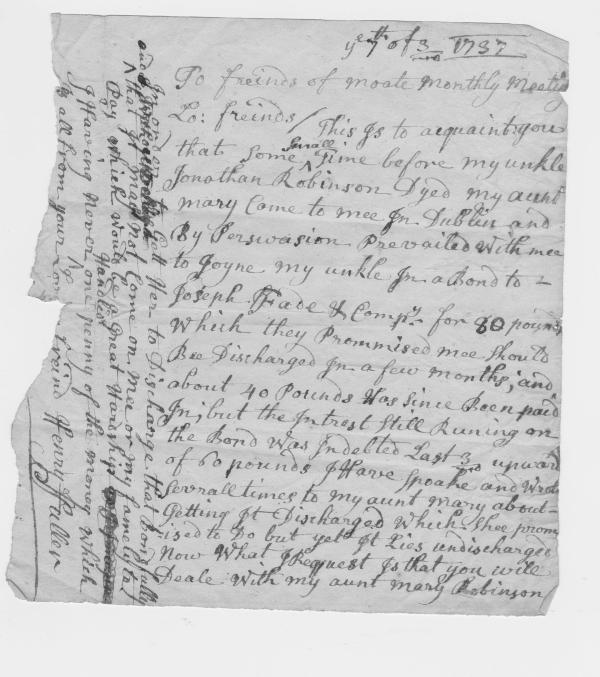 ye 7th of 3rd 1737
To freinds of moate Monthly Meeting
Lo: freinds / This Is to acquaint you
that Some Small Time before my unkle
Jonathan Robinson Dyed my aunt
mary Came to mee In Dublin and
By Perswasion Prevailed With mee
to Joyne my unkle In a Bond to
Joseph Fade & Compy for 80 pounds
Which they Promised mee Should
Bee Discharged In a few months, and
about 40 Pounds Has Since Been paid
In, but the Intrest Still Runing on
the Bond Was Indebted Last 3rd upward
of 60 pounds I Have Spoake and Wrot
Severall times to my aunt Mary about
Getting It Discharged Which Shee prom
ised to Do but yett It Lies undischarged
Now What I Request Is that you will
Deale With my aunt mary Robinson
In order to Gett Her to Discharge that Bond fully
and
that It may not Come on Mee or my family to
Pay which would be a Great Hardship
Handled
I Having Never one penny of the money which
Is all from your Lov freind Henry Fuller